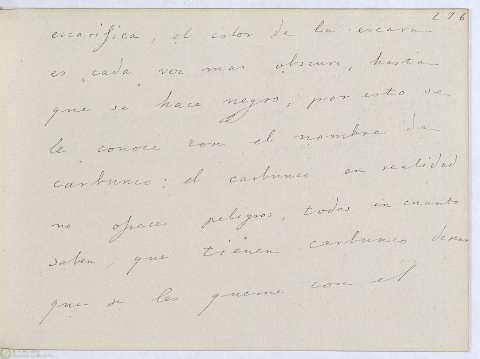 276
escarifica, el color de la escara
es cada vez mas obscuro, hasta
que se hace negro, por esto se
le conoce con el nombre de
carbunco: el carbunco en realidad
no ofrece peligros, todos en cuanto
saben, que tienen carbunco
que se les queme con el